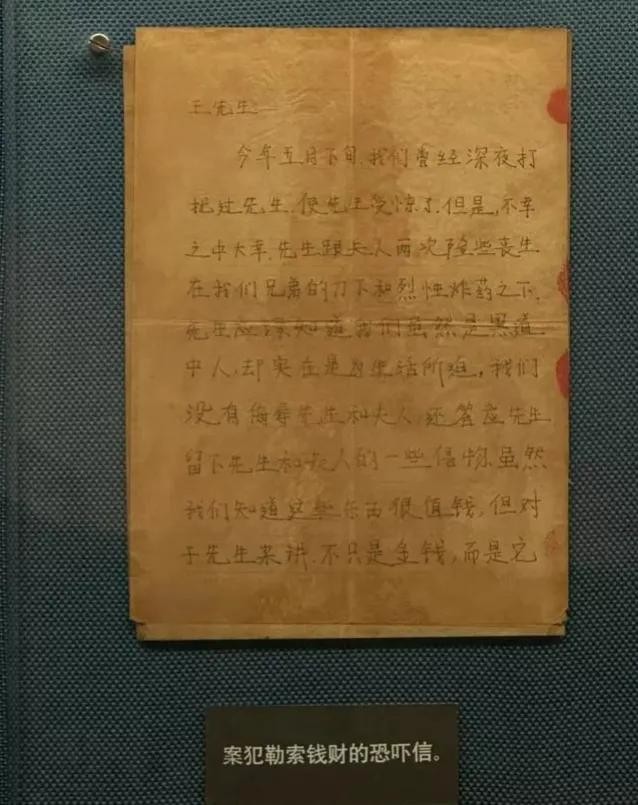 王先生：
今年五月下旬，我们曾经深夜打
扰过先生，使先生受惊了，但是，不幸
之中大幸，先生跟夫人两次险些丧生
在我们兄弟的刀下和烈性炸药之下，
先生应该知道我们虽然是黑道
中人，却实在是为生活所迫，我们
没有侮辱先生和夫人，还答应先生
留下先生和夫人的一些信物虽然
我们知道这些东西很值钱，但对
于先生来讲，不只是金钱，而是它
案犯勒索钱财的恐吓信。